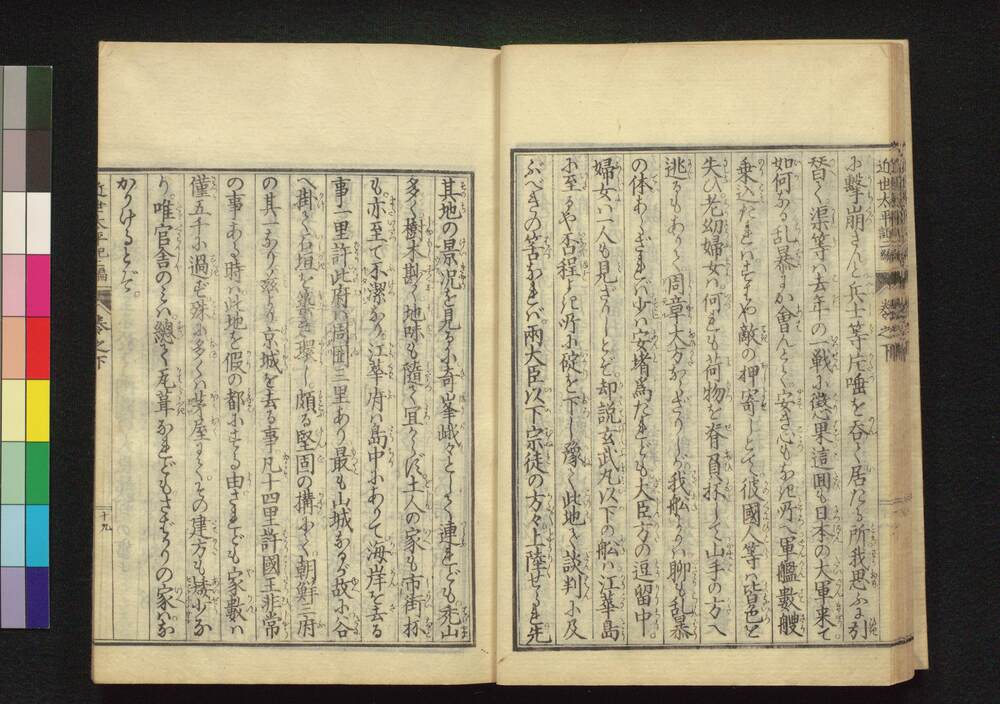 近世太平記二編 巻之下
に撃崩さんと兵士等片唾を呑て居たる所我思ふに引
替て渠等は去年の一戦に懲果這回も日本の大軍来て
如何なる乱暴にか會んとて安き心もなき所へ軍艦數艘
乗込たればすはや敵の押寄しとて彼國人等は皆色を
失ひ老幼婦女は何れも荷物を脊負抔して山手の方へ
逃るもありて周章大方ならざりしが我船よりは聊も乱暴
の体あらざれば少は安堵為たれども大臣方の逗留中
婦女は一人も見ざりしとぞ却説玄武丸以下の船は江華島
に至るや否程よき所に碇を下し豫て此地にて談判に及
ぶべきの筈なれば兩大臣以下宗徒の方々上陸せられ先
其地の景况を見るに奇峯峨々として連れども禿山
多く樹木尠く地味も隨て宜からず土人の家も市街抔
も亦至て不潔なり江華府は島中にありて海岸を去る
事一里許此府は周囲三里あり最も山城なるが故に谷
へ掛て石垣を築き環し頗る堅固の構にて朝鮮三府
の其一なりが茲より京城を去る事凡十四里許國王非常
の事ある時は此地を假の都にする由されども家數は
僅五千に過ず殊に多くは茅屋にてその建方も矮少な
り唯官舎のみは總て瓦葺なれどもさばかりの家はな
かりけるとぞ。
近世太平記二編 巻之下 十九